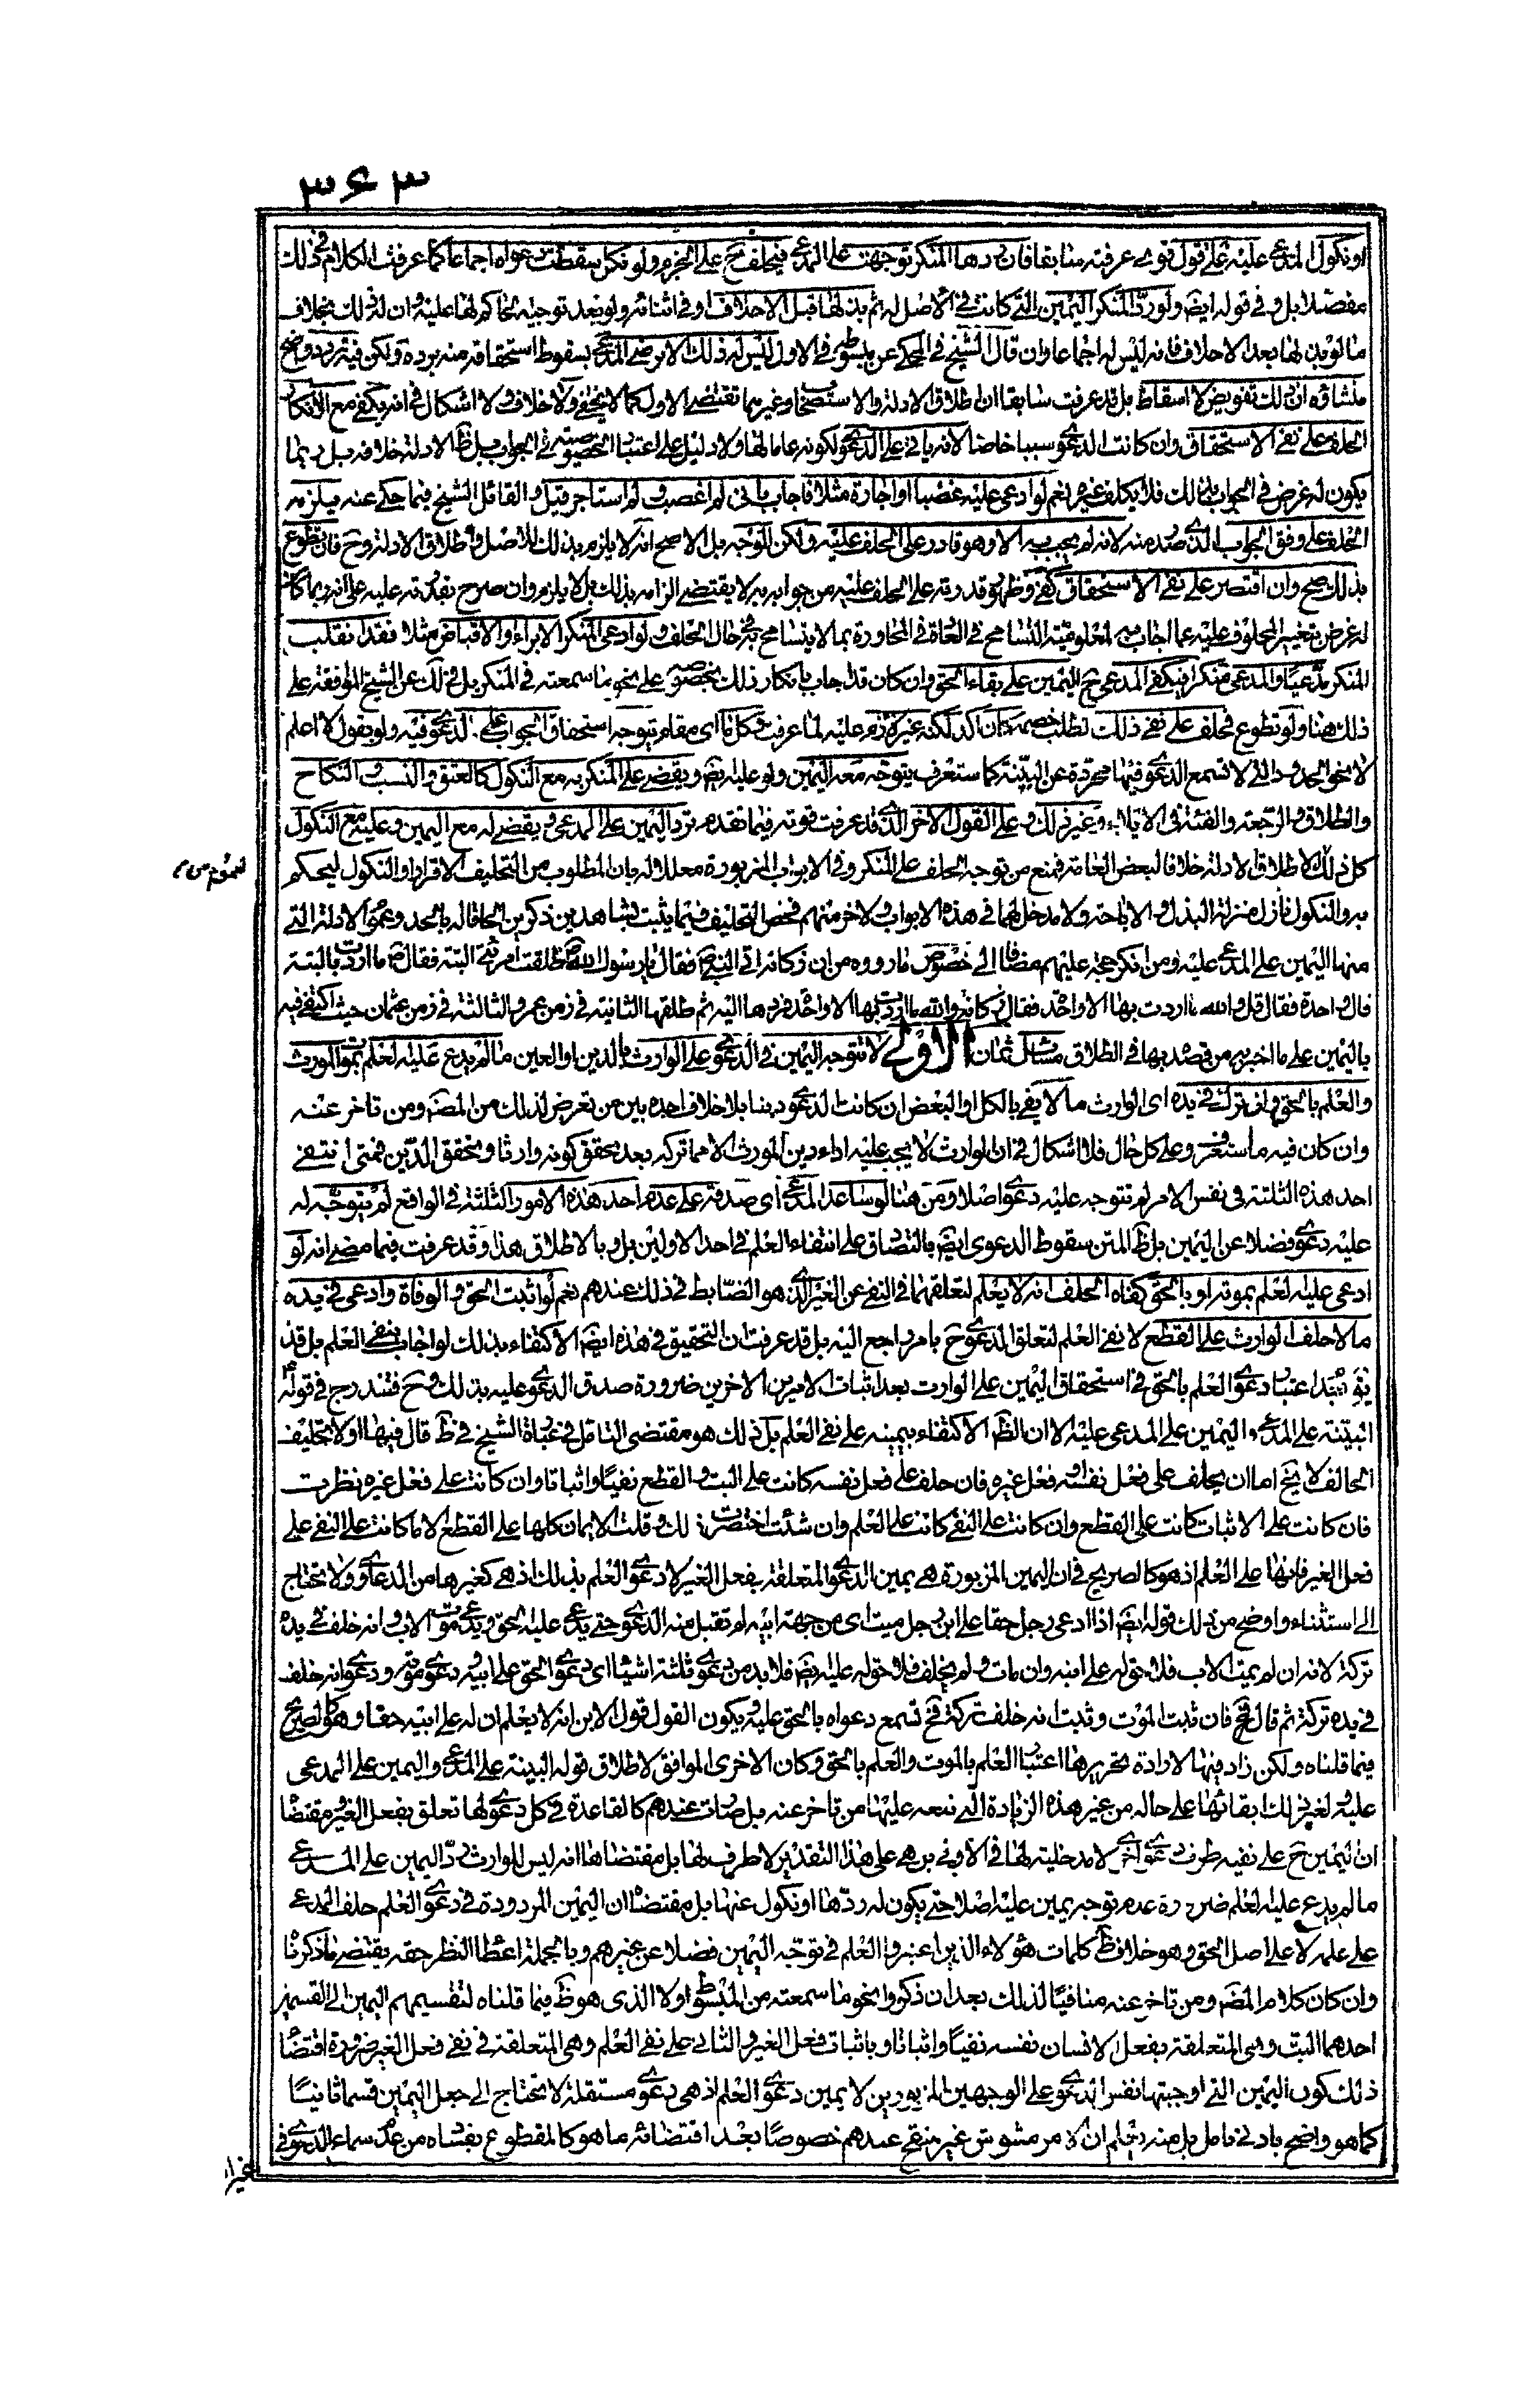 ٣٤٣
او نكول المدعى عليه على قول قوي عرفته سابقا فان ردها المنكر توجهت على المدعى فيحلف ح على الجزم ولو نكل سقطت دعواه اجماعا كما عرفت الكلام في ذلك
مفصلا بل و في قوله ايضا ولو رد المنكر اليمين التي كانت في الاصل له ثم بذلها قبل الاحلاف او في اثنائه ولو بعد توجيه الحاكم لها عليه وان له ذلك بخلاف
ما لو بذلها بعد الاحلاف فانه ليس له اجماعا وان قال الشيخ في المحكي عن مبسوطه في الاول ليس له ذلك الا برضى المدعى بسقوط استحقاقه منه برده ولكن فيه تردد واضح
منشاؤه ان ذلك تفويض لا اسقاط بل قد عرفت سابقا ان اطلاق الادلة والاستصحاب وغيرهما تقتضى الاول كما لا يخفى ولا خلاف ولا اشكال في انه يكفى مع الانكار
الحلف على نفى الاستحقاق وان كانت الدعوى سببا خاصا لانه ياتي على الدعوى لكونه عاما لها ولا دليل على اعتبار الخصوصية في الجواب بل ظ الادلة خلافه بل ربما
يكون له غرض في الجواب بذلك فلا يكلف غيره نعم لو ادعى عليه غصبا او اجارة مثلا فاجاب باني لم اغصب ولم استاجر قيل والقائل الشيخ فيما حكي عنه يلزمه
الحلف على وفق الجواب الذي صدر منه لانه لم يجب به الا وهو قادر على الحلف عليه ولكن الوجه بل الاصح انه لا يلزم بذلك للاصل و اطلاق الادلة وح فان تطوع
بذلك صح وان اقتصر على نفى الاستحقاق كفى وظهور قدرته على الحلف عليه من جوابه به لا يقتضى الزامه بذلك بل لا يلزم وان صرح بقدرته عليه على انه ربما كان
له غرض بتغيير المحلوف عليه عما اجاب به لمعلومية التسامح في العادة في المحاورة بما لا يتسامح به في حال الحلف ولو ادعى المنكر الابراء او الاقباض مثلا فقد انقلب
المنكر مدعيا والمدعى منكرا فيكفى المدعى ح اليمين على بقاء الحق وان كان قد اجاب بانكار ذلك بخصوصه على نحو ما سمعته في المنكر بل في ذلك عن الشيخ الموافقة على
ذلك هنا ولو تطوع فحلف على نفى ذلك لطلب خصمه كان اكد لكنه غير لازم عليه لما عرفت وكل ما اى مقام يتوجه استحقاق الجواب على الدعوى فيه ولو بقول لا اعلم
لا نحو الحدود التي لا تسمع الدعوى فيها مجردة عن البينة كما ستعرف يتوجه معه اليمين ولو عليه بته ويقضى على المنكر به مع النكول كالعتق والنسب والنكاح
والطلاق والرجعة والفئة في الايلاء وغير ذلك وعلى القول الاخر الذي قد عرفت قوته فيما تقدم ترد اليمين على المدعى ويقضى له مع اليمين وعليه مع النكول
كل ذلك لاطلاق الادلة خلافا لبعض العامة فمنع من توجه الحلف على المنكر و في الابواب المزبورة معللا له بان المطلوب من التحليف الاقرار او النكول ليحكم
به والنكول نازل منزلة البذل والاباحة ولا مدخل لهما في هذه الابواب ولاخر منهم فخص التحليف فيما يثبت بشاهدين ذكرين الحاقا له بالحد وعموم الادلة التي
منها اليمين على المدعى عليه ومن انكر حجة عليهم مضافا الى خصوص ما رووه من ان ركانة اتى النبي ص فقال يا رسول الله ص طلقت امراتى البتة فقال ص ما اردت بالبتة
قال واحدة فقال قل والله ما اردت بها الا واحدة فقال ركانة والله ما اردت بها الا واحدة فردها اليه ثم طلقها الثانية في زمن عمر و الثالثة في زمن عثمان حيث اكتفى فيه
باليمين على ما اخبر به من قصده بها في الطلاق مسائل ثمان الاولى لا تتوجه اليمين في الدعوى على الوارث بالدين او العين ما لم يدع عليه العلم بموت المورث
والعلم بالحق وانه ترك في يده اى الوارث مالا يفى بالكل او البعض ان كانت الدعوى دينا بلا خلاف اجده بين من تعرض لذلك من المصنف ومن تاخر عنه
وان كان فيه ما ستعرف وعلى كل حال فلا اشكال في ان الوارث لا يجب عليه اداء دين المورث الا مما تركه بعد تحقق كونه وارثا وتحقق الدين فمتى انتفى
احد هذه الثلثة في نفس الامر لم تتوجه عليه دعوى اصلا ومن هنا لو ساعد المدعى اى صدقه على عدم احد هذه الامور الثلثة في الواقع لم يتوجه له
عليه دعوى فضلا عن اليمين بل ظ المتن سقوط الدعوى ايضا بالتصادق على انتفاء العلم في احد الاولين بل و بالاطلاق هذا وقد عرفت فيما مضى انه لو
ادعى عليه العلم بموته او بالحق كفاه الحلف انه لا يعلم لتعلقهما في النفى عن الغير الذي هو الضابط في ذلك عندهم نعم لو اثبت الحق والوفاة وادعى في يده
مالا حلف الوارث على القطع لا نفى العلم لتعلق الدعوى ح بامر راجع اليه بل قد عرفت ان التحقيق في هذه ايضا الاكتفاء بذلك لو اجاب بنفى العلم بل قد
اعتبار دعوى العلم بالحق في استحقاق اليمين على الوارث بعد اثبات الامرين الاخرين ضرورة صدق الدعوى عليه بذلك وح فتندرج في قوله
البينة على المدعى واليمين على المدعى عليه الا ان الظ الاكتفاء بيمينه على نفى العلم بل ذلك هو مقتضى التامل في عبارة الشيخ في ط قال فيها اولا تحليف
الحالف لا يخ اما ان يحلف على فعل نفسه او فعل غيره فان حلف على فعل نفسه كانت على البت والقطع نفيا واثباتا وان كانت على فعل غيره نظرت
فان كانت على الاثبات كانت على القطع وان كانت على النفى كانت على العلم وان شئت اختصرت ذلك وقلت الايمان كلها على القطع الا ما كانت على النفى على
فعل الغير فانها على العلم اذ هو كالصريح في ان اليمين المزبورة هي يمين الدعوى المتعلقة بفعل الغير لا دعوى العلم بذلك اذ هي كغيرها من الدعاوى ولا تحتاج
الى استثناء واوضح من ذلك قوله ايضا اذا ادعى رجل حقا على ابن رجل ميت اى من جهة ابيه لم تقبل منه الدعوى حتى يدعى عليه الحق ويدعى موت الاب وانه خلف في يده
تركة لانه ان لم يمت الاب فلا حق له على ابنه وان مات ولم يخلف فلا حق له عليه ايضا فلا بد من دعوى ثلثة اشياء اى دعوى الحق على ابيه ودعوى موته ودعوى انه خلف
في يده تركة ثم قال فان ثبت الموت وثبت انه خلف تركة فح تسمع دعواه بالحق عليه ويكون القول قول الابن انه لا يعلم ان له على ابيه حقا وهو كالصريح
فيما قلناه ولكن زاد فيها لارادة تحريرها اعتبار العلم بالموت والعلم بالحق وكان الاحرى الموافق لاطلاق قوله البينة على المدعى واليمين على المدعى
عليه ولغير ذلك ابقائها على حاله من غير هذه الزيادة التي تبعه عليها من تاخر عنه بل صارت عندهم كالقاعدة في كل دعوى لها تعلق بفعل الغير ومقتضاها
ان اليمين ح على نفيه طرف دعوى اخرى لا مدخلية لها في الاولى بل هى على هذا التقدير لا طرف لها بل مقتضاها انه ليس للوارث رد اليمين على المدعى
ما لم يدع عليه العلم ضرورة عدم توجه يمين عليه اصلا حتى يكون له ردها او نكول عنها بل مقتضاه ان اليمين المردودة في دعوى العلم حلف المدعى
على علمه لا على اصل الحق وهو خلاف ظ كلمات هؤلاء الذين اعتبروا العلم في توجه اليمين فضلا عن غيرهم وبالجملة اعطاء النظر حقه يقتضى ما ذكرنا
وان كان كلام المصنف ومن تاخر عنه منافيا لذلك بعد ان ذكروا نحو ما سمعته من المبسوط اولا الذى هو ظ فيما قلناه لتقسيمهم اليمين الى القسمين
احدهما البت وهى المتعلقة بفعل الانسان نفسه نفيا واثباتا و باثبات فعل الغير والثانى على نفى العلم وهى المتعلقة في نفى فعل الغير ضرورة اقتضاء
ذلك كون اليمين التي اوجبتها نفس الدعوى على الوجهين المزبورين لا يمين دعوى العلم اذ هى دعوى مستقلة لا تحتاج الى جعل اليمين قسما ثانيا
كما هو واضح بادنى تامل بل منه يعلم ان الامر مشوش غير منقح عندهم خصوصا بعد اقتضائه ما هو كالمقطوع بفساده من عدم سماع الدعوى في
غير